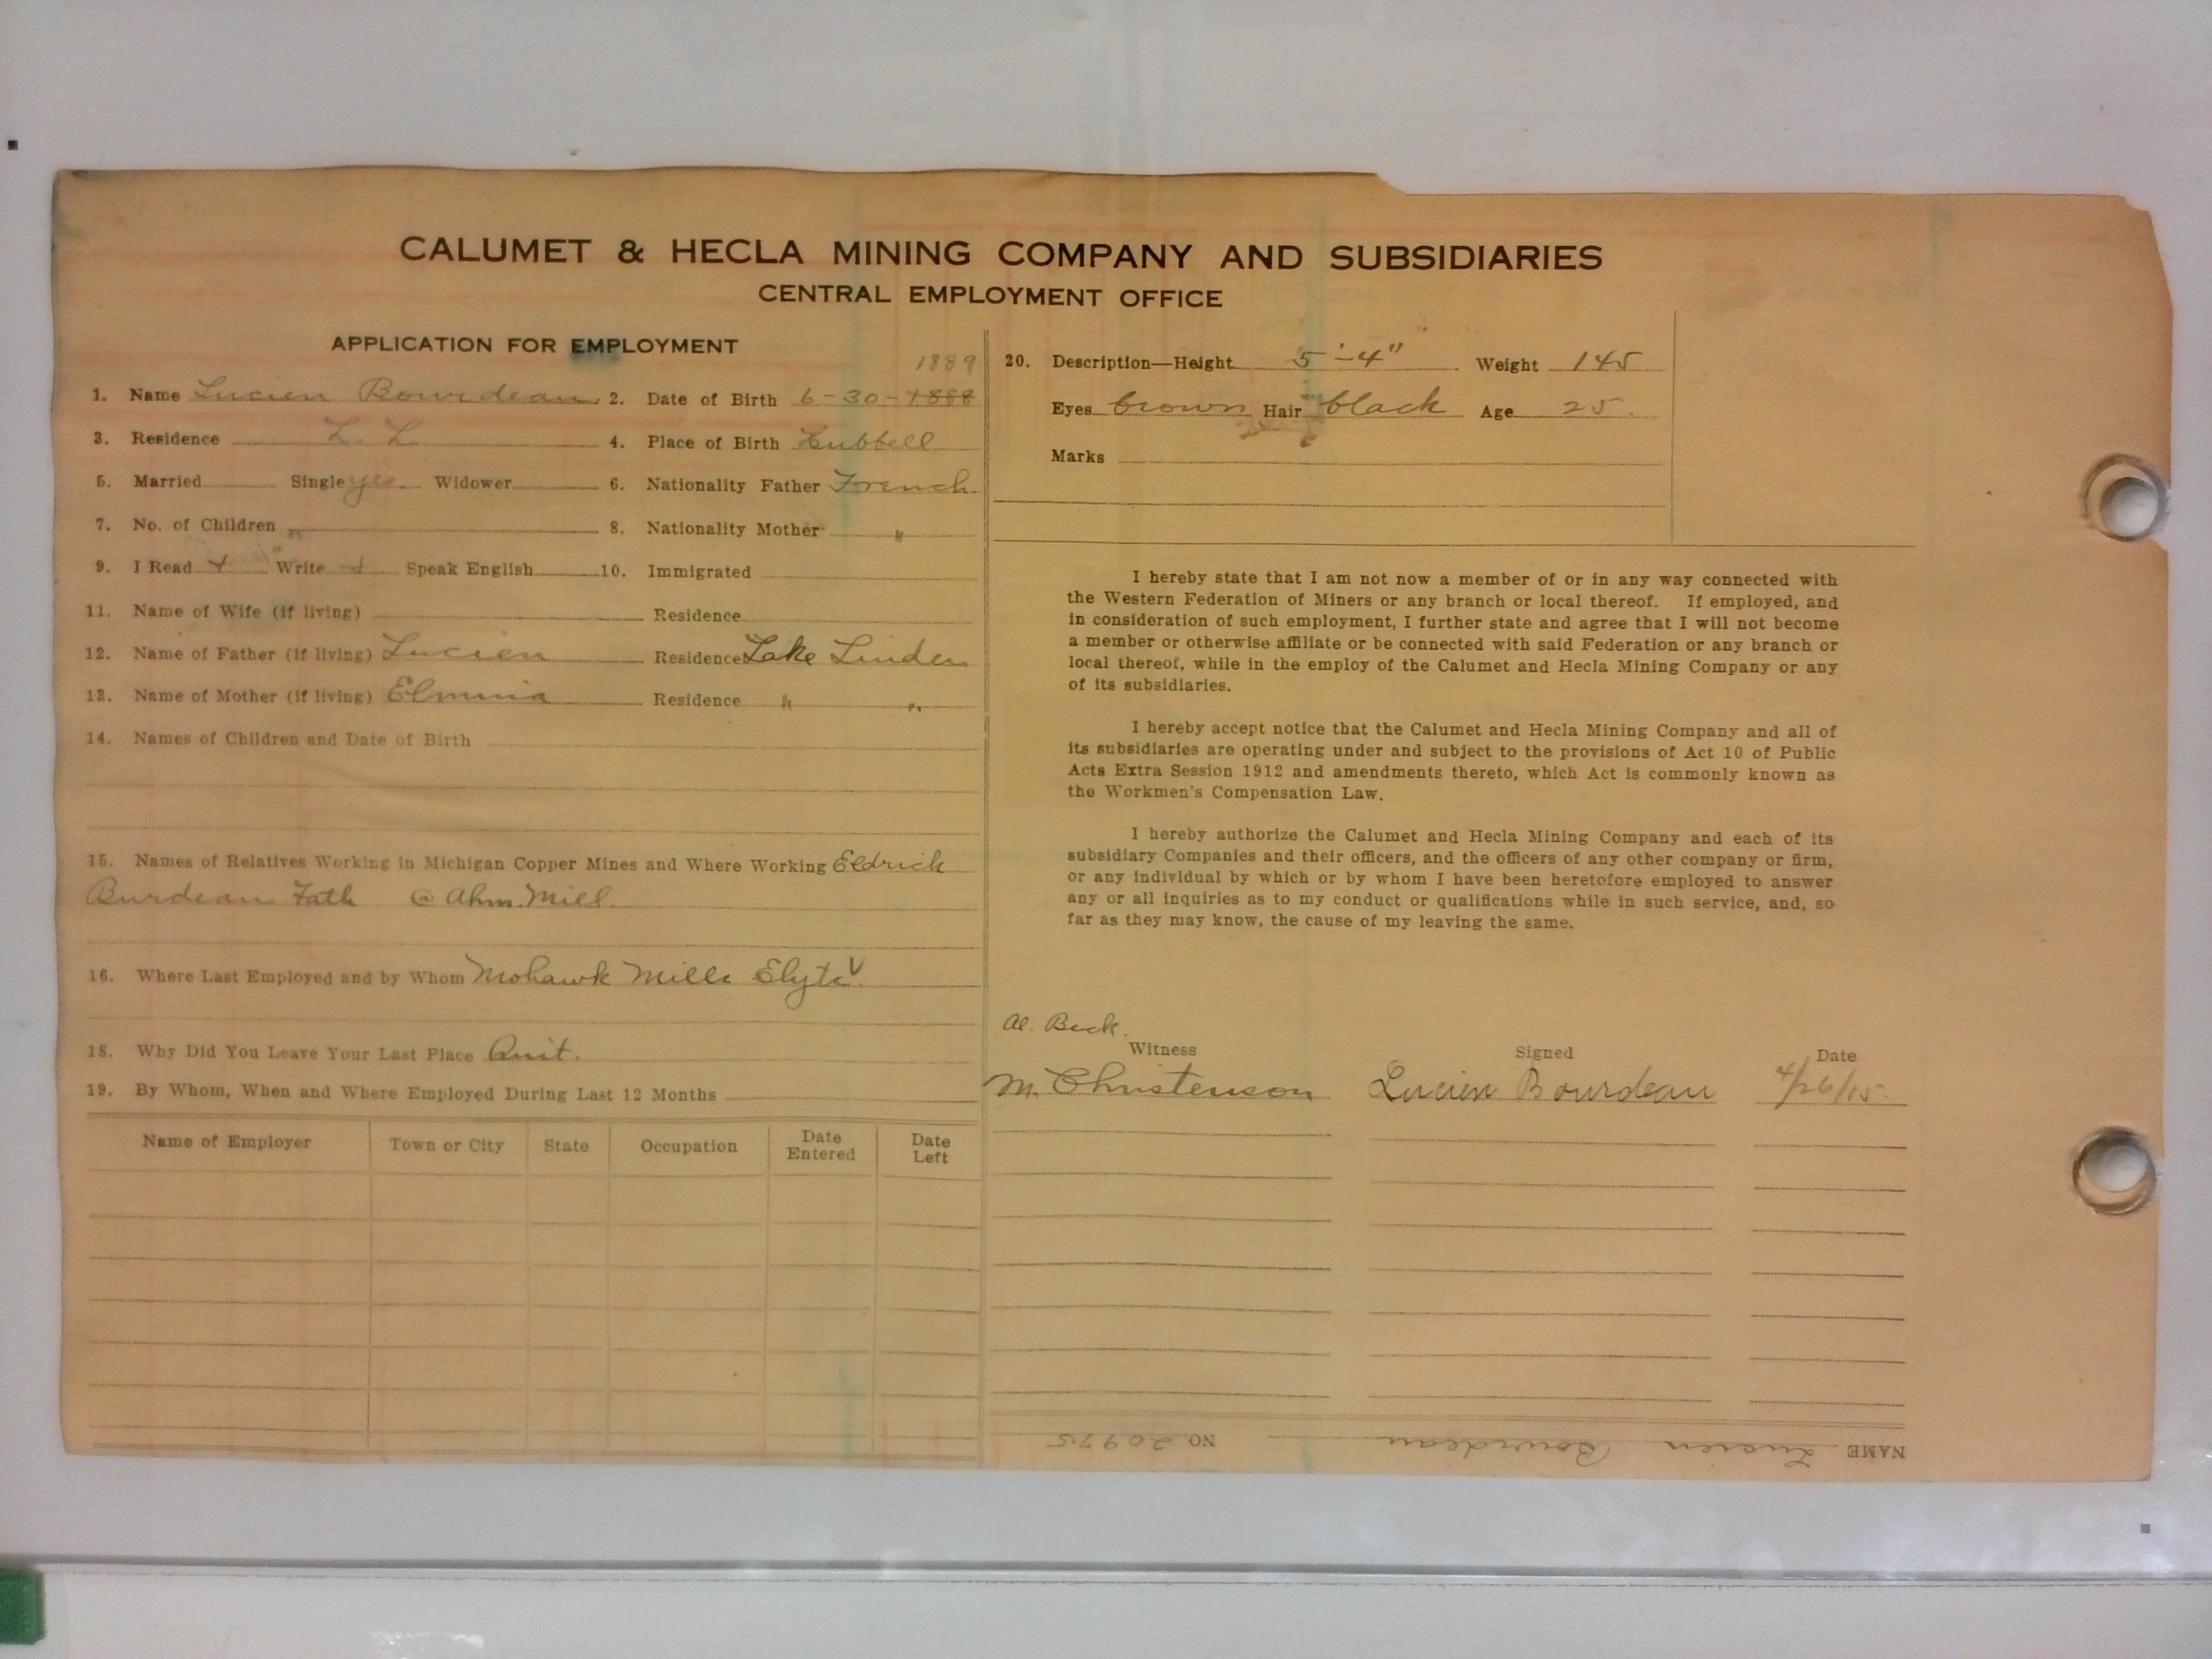 CALUMET & HECLA MINING COMPANY AND SUBSIDIARIES
CENTRAL EMPLOYMENT OFFICE
APPLICATION FOR EMPLOYMENT
1889
1. Name Lucien Bourdeau 2. Date of Birth 6-30-1888
3. Residence L. L. 4. Place of Birth Hubbell
5. Married Single yes. Widower 6. Nationality Father French.
7. No. of Children " 8. Nationality Mother "
9. I Read + Write + Speak English 10. Immigrated
11. Name of Wife (if living) Residence
12. Name of Father (if living) Lucien Residence Lake Linden
13. Name of Mother (if living) Elmina Residence " "
14. Names of Children and Date of Birth
15. Names of Relatives Working in Michigan Copper Mines and Where Working Eldrick
Burdeau Fath @ Ahm. Mill.
16. Where Last Employed and by Whom Mohawk Mills
18. Why Did You Leave Your Last Place Quit.
19. By Whom, When and Where Employed During Last 12 Months
Name of Employer Town or City State Occupation Date Entered Date Left
20. Description—Height 5'-4" Weight 145
Eyes brown Hair black Age 25.
Marks
I hereby state that I am not now a member of or in any way connected with
the Western Federation of Miners or any branch or local thereof. If employed, and
in consideration of such employment, I further state and agree that I will not become
a member or otherwise affiliate or be connected with said Federation or any branch or
local thereof, while in the employ of the Calumet and Hecla Mining Company or any
of its subsidiaries.
I hereby accept notice that the Calumet and Hecla Mining Company and all of
its subsidiaries are operating under and subject to the provisions of Act 10 of Public
Acts Extra Session 1912 and amendments thereto, which Act is commonly known as
the Workmen's Compensation Law.
I hereby authorize the Calumet and Hecla Mining Company and each of its
subsidiary Companies and their officers, and the officers of any other company or firm,
or any individual by which or by whom I have been heretofore employed to answer
any or all inquiries as to my conduct or qualifications while in such service, and, so
far as they may know, the cause of my leaving the same.
Al. Beck.
Witness Signed Date
M. Christenson Lucien Bourdeau 4/26/15.
NAME Lucien Bourdeau NO. 20975